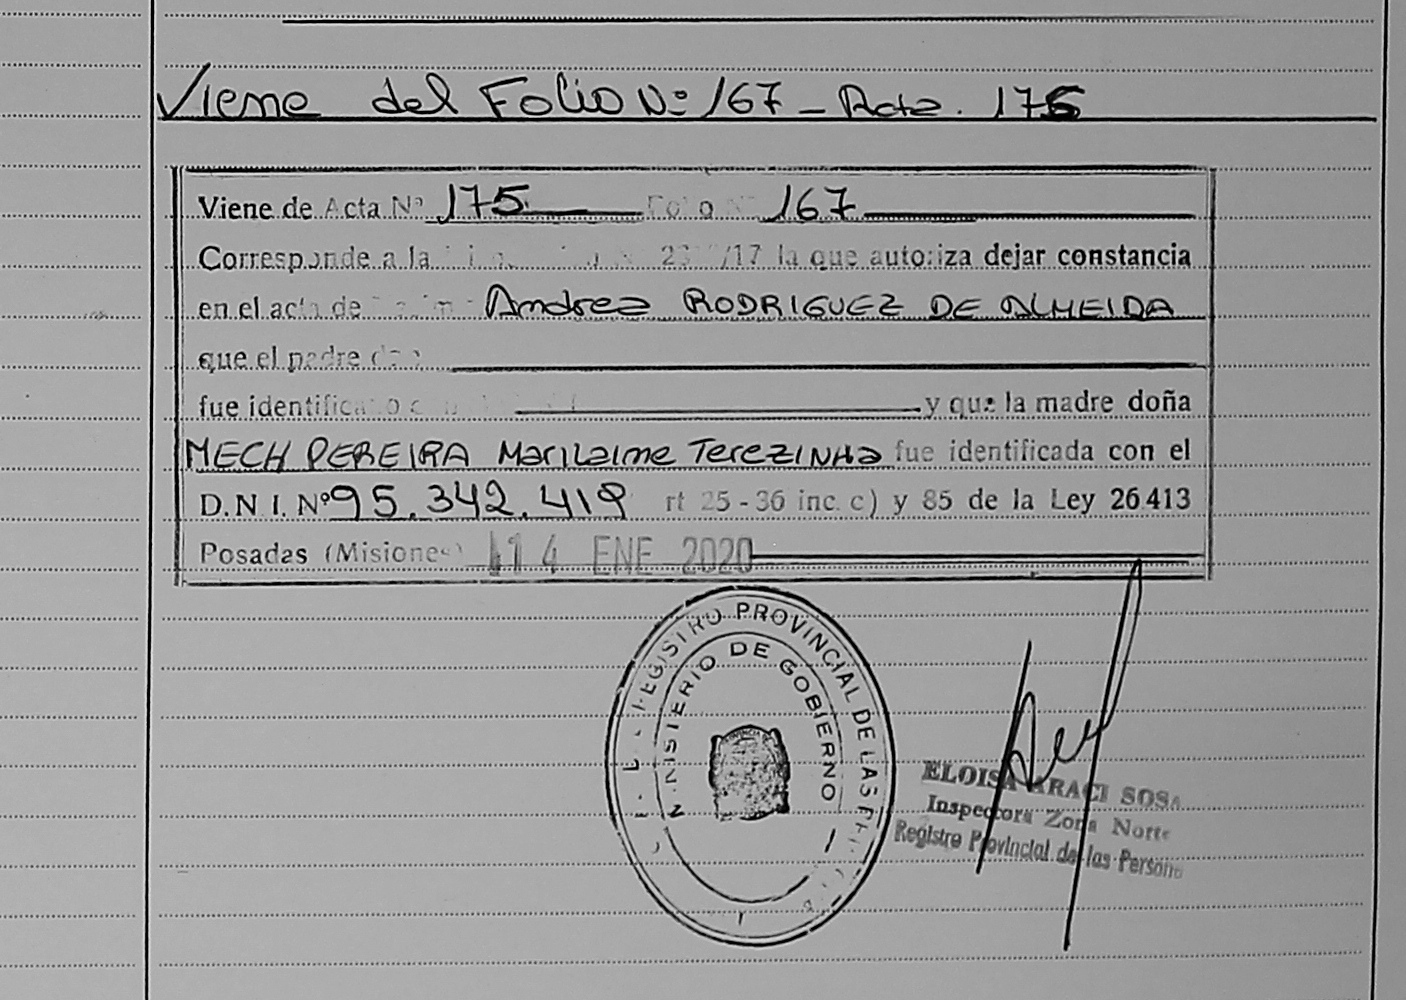 Viene del Folio Nº 167 - Acta. 175
Viene de Acta Nº 175 Folio Nº 167
Corresponde a la /17 la que autoriza dejar constancia
en el acta de Andrea RODRIGUEZ DE ALMEIDA
que el padre don
fue identificado y que la madre doña
MECH PEREIRA Marilaine TerezINHa fue identificada con el
D.N.I. Nº 95.342.419 rt 25 - 36 inc. c) y 85 de la Ley 26413
Posadas (Misiones) 14 ENE 2020
REGISTRO PROVINCIAL DE LAS
MINISTERIO DE GOBIERNO
ELOISA ARACI SOSA
Inspectora Zona Norte
Registro Provincial de las Persona